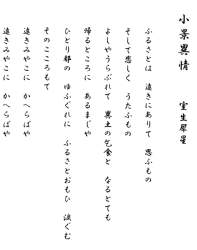 小景異情
室生犀星
ふるさとは 遠きにありて 思ふもの
そして悲しく うたふもの
よしやうらぶれて 異土の乞食と なるとても
帰るところに あるまじや
ひとり都の ゆふぐれに ふるさとおもひ 涙ぐむ
そのこころもて
遠きみやこに かへらばや
遠きみやこに かへらばや